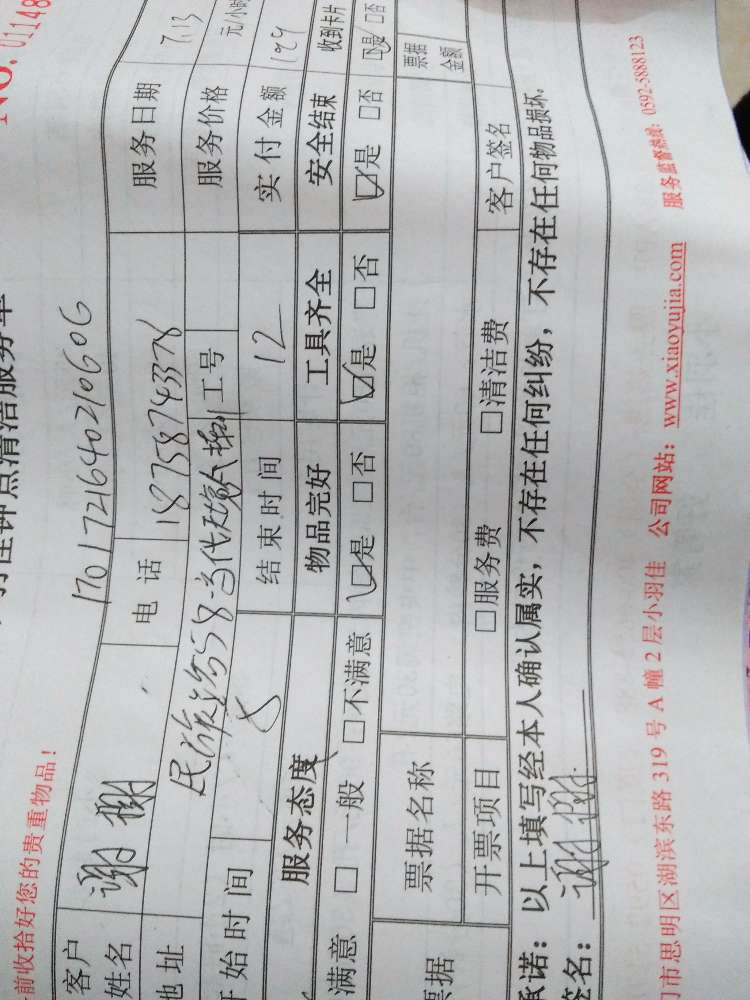 NO. 01148
羽佳钟点清洁服务单
前收拾好您的贵重物品！
1701721640210606
客户姓名 谢树 电话 18758743378 服务日期 7.13
地址 民族路58 工号 服务价格 元/小时
开始时间 8 结束时间 12 实付金额 199
服务态度 物品完好 工具齐全 安全结束 收到卡片
满意 □一般 □不满意 ☑是 □否 ☑是 □否 ☑是 □否 ☑是 □否
票据 票据名称 票据金额
开票项目 □服务费 □清洁费 客户签名
承诺：以上填写经本人确认属实，不存在任何纠纷，不存在任何物品损坏。
签名：谢树
门市思明区湖滨东路 319 号 A 幢 2 层小羽佳 公司网站：www.xiaoyujia.com 服务监督热线：0592-3888123